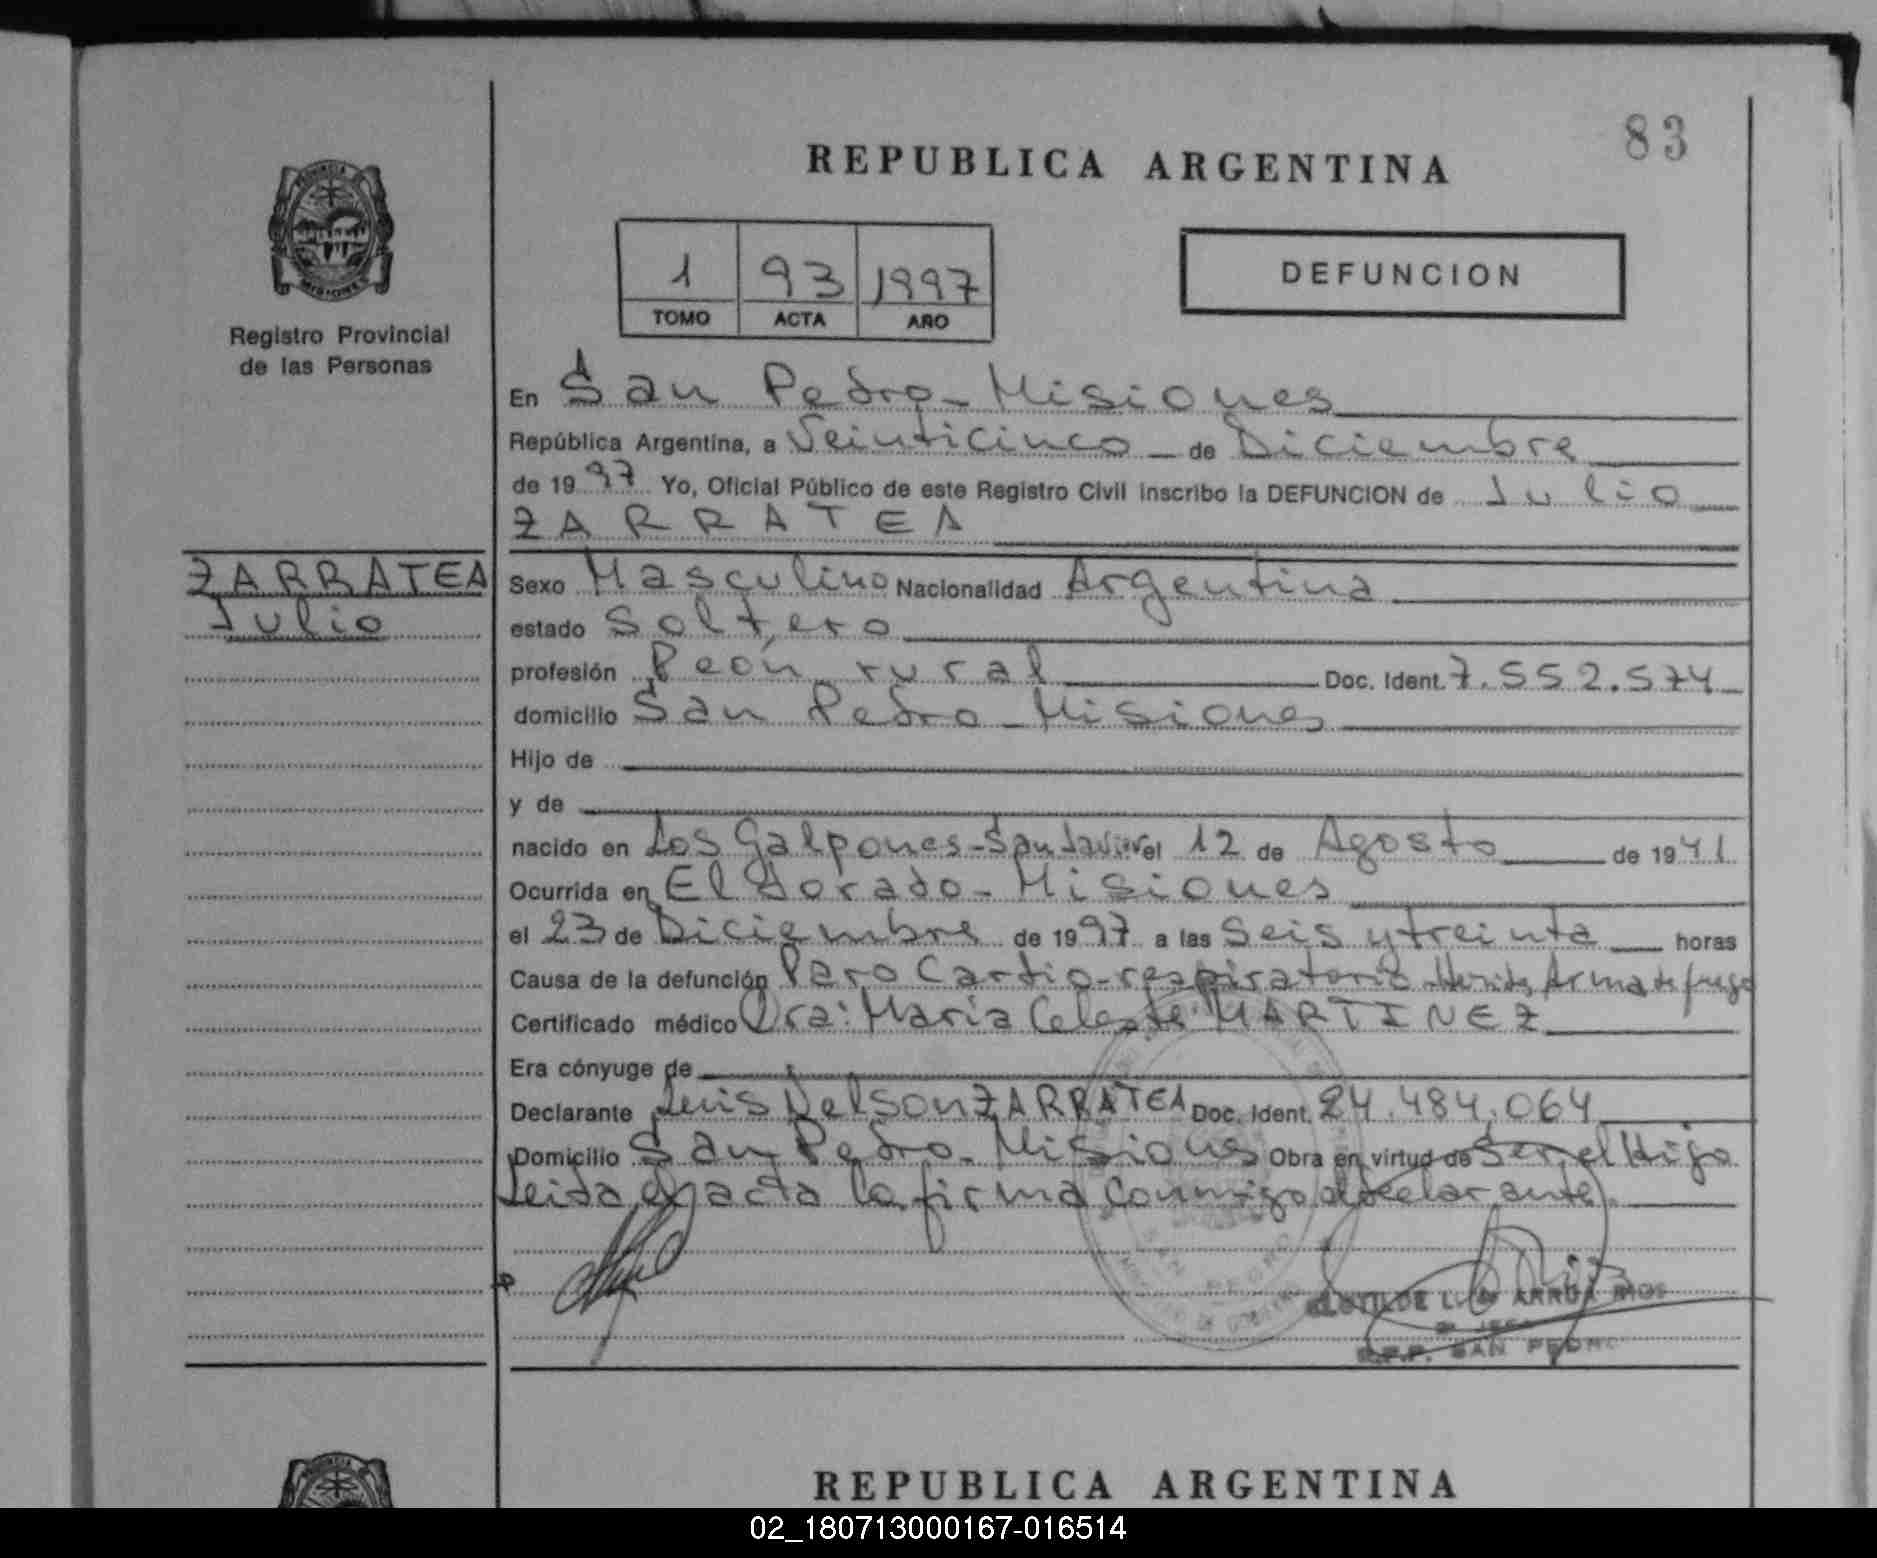 83
REPUBLICA ARGENTINA
PROVINCIA
MISIONES
Registro Provincial
de las Personas
1 93 1997
TOMO ACTA AÑO
DEFUNCION
En San Pedro - Misiones
República Argentina, a Veinticinco - de Diciembre
de 1997 Yo, Oficial Público de este Registro Civil inscribo la DEFUNCION de Julio
ZARRATEA
ZARRATEA
Julio
Sexo Masculino Nacionalidad Argentina
estado Soltero
profesión Peón rural Doc. Ident. 7.552.574
domicilio San Pedro - Misiones
Hijo de
y de
nacido en Los Galpones - San Javier el 12 de Agosto de 1941
Ocurrida en El Dorado - Misiones
el 23 de Diciembre de 1997 a las Seis y treinta horas
Causa de la defunción Paro Cardio-respiratorio - Herida Arma de fuego
Certificado médico Dra: María Celeste MARTINEZ
Era cónyuge de
Declarante Luis Nelson ZARRATEA Doc. Ident. 24.484.064
Domicilio San Pedro - Misiones Obra en virtud de Ser el Hijo
Leida el acta la firma conmigo el declarante.
SAN PEDRO
ARRUA RIOS
R.P.P. SAN PEDRO
PROVINCIA
REPUBLICA ARGENTINA
02_180713000167-016514